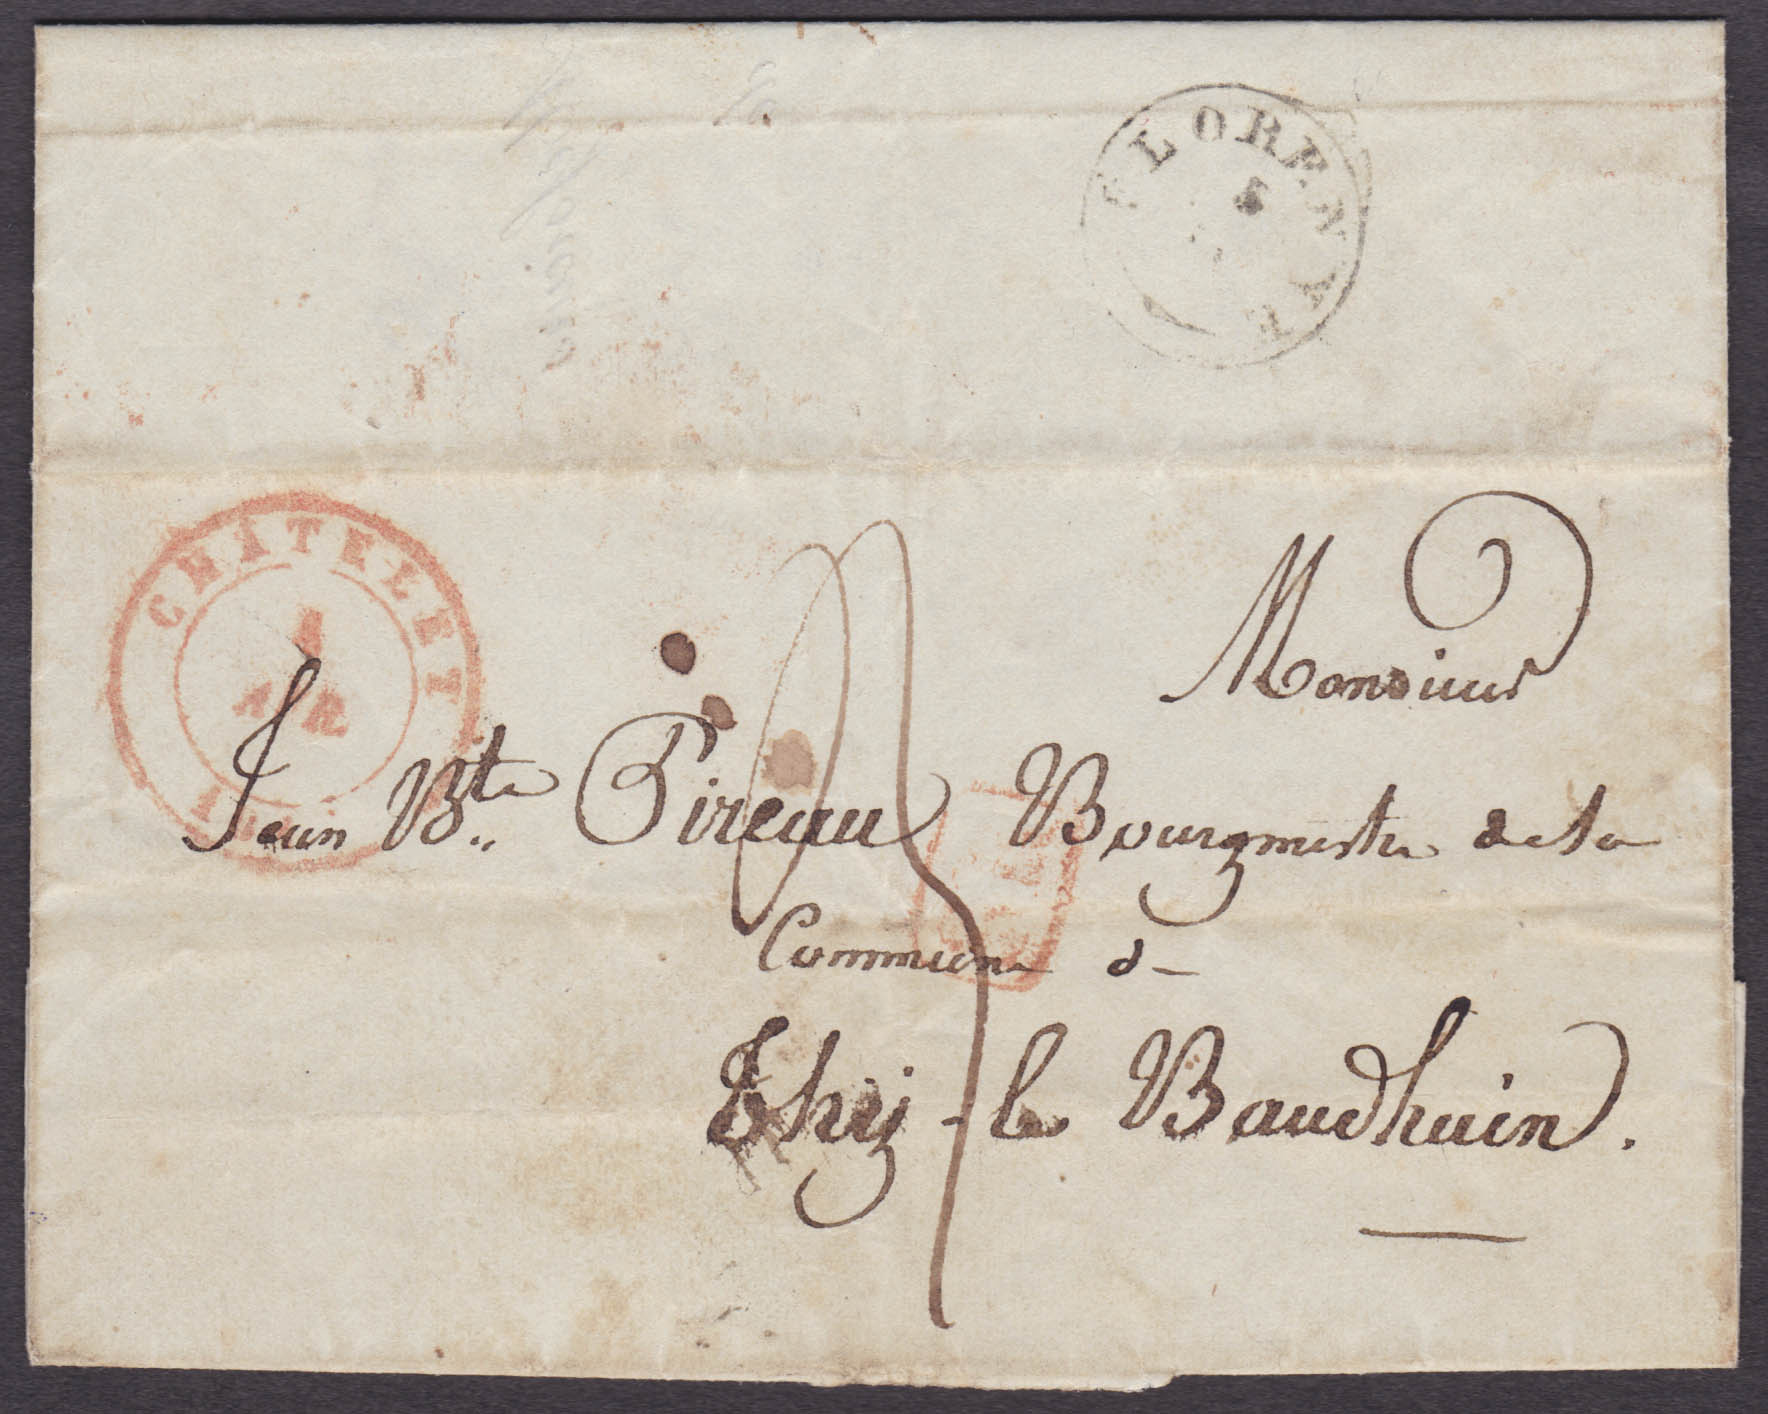 FLORENNE
CHATELET
1
AVR.
Monsieur
Jean Bte Pireau Bourgmestre de la
Commune de
Thij-le Baudhuin.